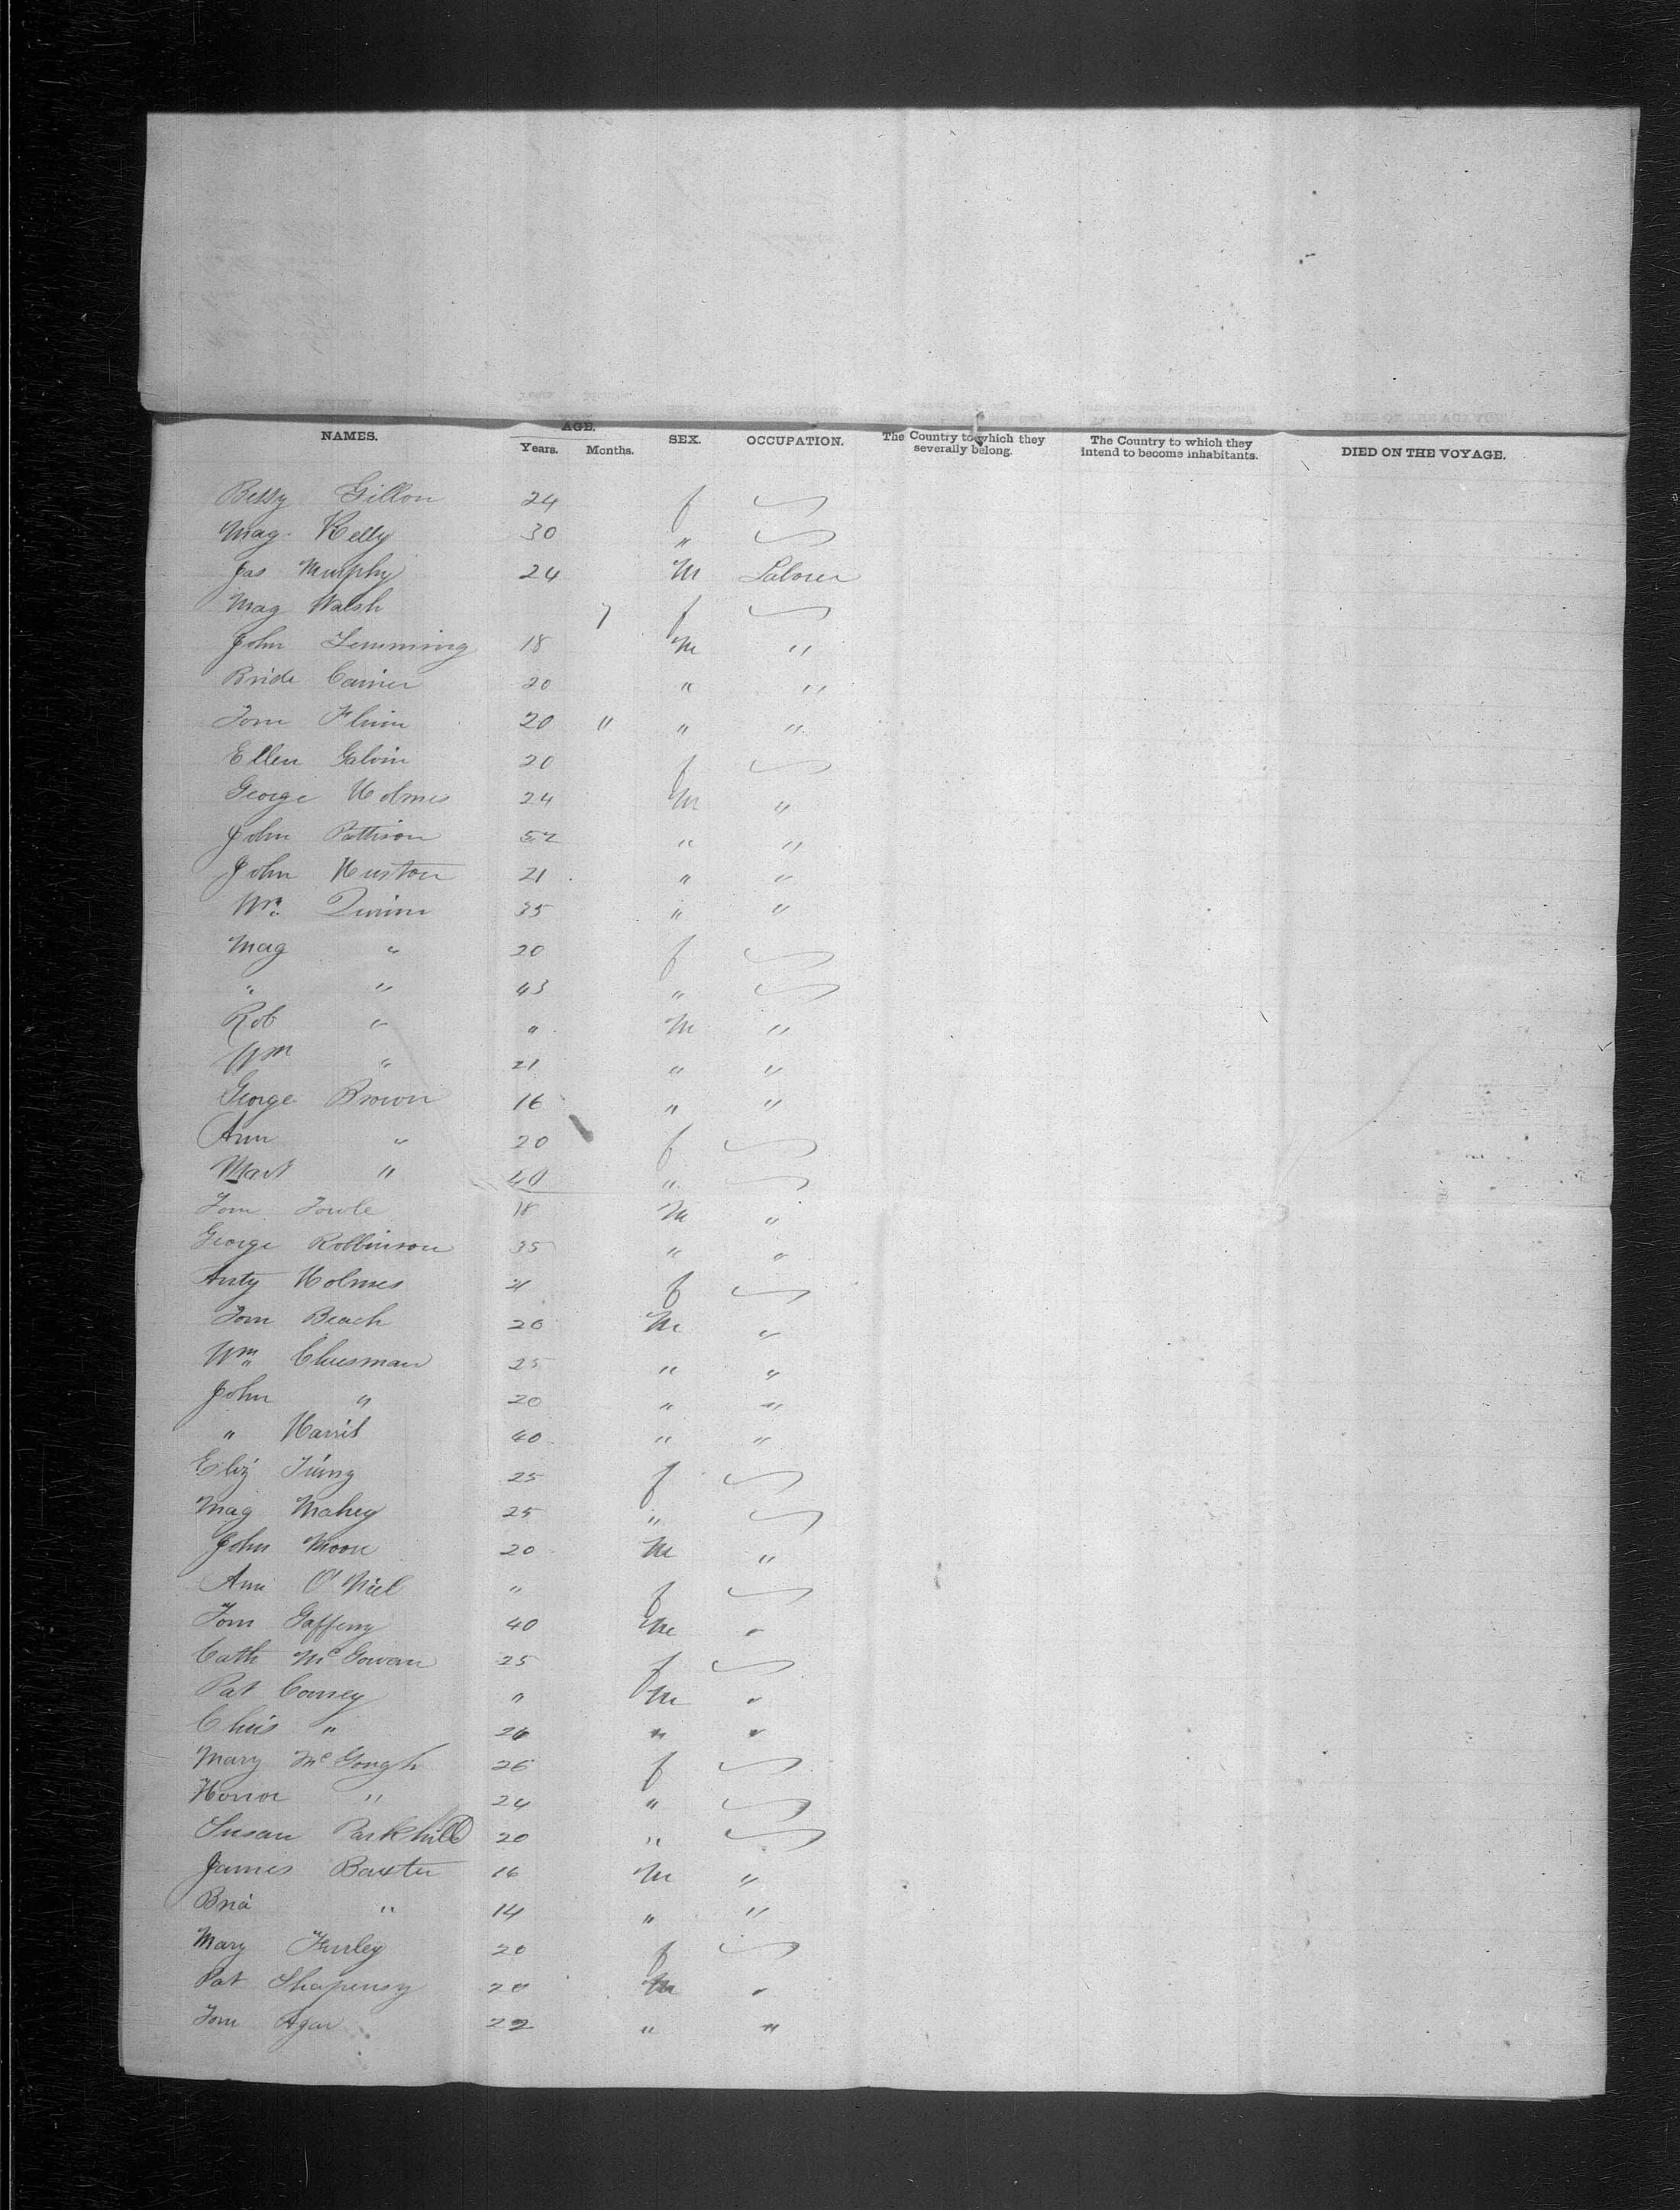 NAMES. AGE. Years. Months. SEX. OCCUPATION. The Country to which they severally belong. The Country to which they intend to become inhabitants. DIED ON THE VOYAGE.
Bessy Gillon 24 f
Mag. Kelly 30 "
Jas Murphy 24 M Laborer
Mag Walsh 7 f
John Lemming 18 M "
Bride Carrier 20 " "
Tom Flinn 20 " " "
Ellen Galvin 20 f
George Holmes 24 M "
John Pattison 52 " "
John Huston 21 " "
Wm Quinn 35 " "
Mag " 20 f
" " 43 "
Rob " " M "
Wm " 21 " "
George Brown 16 " "
Ann " 20 f
Mart " 40 "
Tom Towle 18 M "
George Robbinson 35 " "
Anty Holmes 21 f
Tom Beach 20 M "
Wm Cheesman 25 " "
John " 20 " "
" Harris 40 " "
Eliz 25 f
Mag Mahey 25 "
John Moore 20 M "
Ann O'Niel " f
Tom Gaffeny 40 M "
Cath McGowan 25 f
Pat Comey " M "
Chris " 26 " "
Mary McGough 26 f
Honor " 24 "
Susan Parkhill 20 "
James Baxter 16 M "
Bria " 14 " "
Mary Hurley 20 f
Pat 20 M "
Tom Agar 22 " "